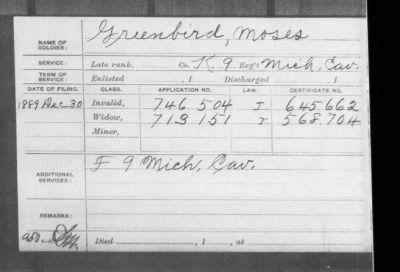 NAME OF SOLDIER: Greenbird, Moses
SERVICE: Late rank, Co. K. 9 Reg't Mich. Cav.
TERM OF SERVICE: Enlisted , 1 Discharged , 1
DATE OF FILING. CLASS. APPLICATION NO. LAW. CERTIFICATE NO.
1889 Dec. 30 Invalid, 746 504 J 645662
Widow, 713 151 J 568.704
Minor,
ADDITIONAL SERVICES: F 9 Mich. Cav.
REMARKS:
Died , 1 , at